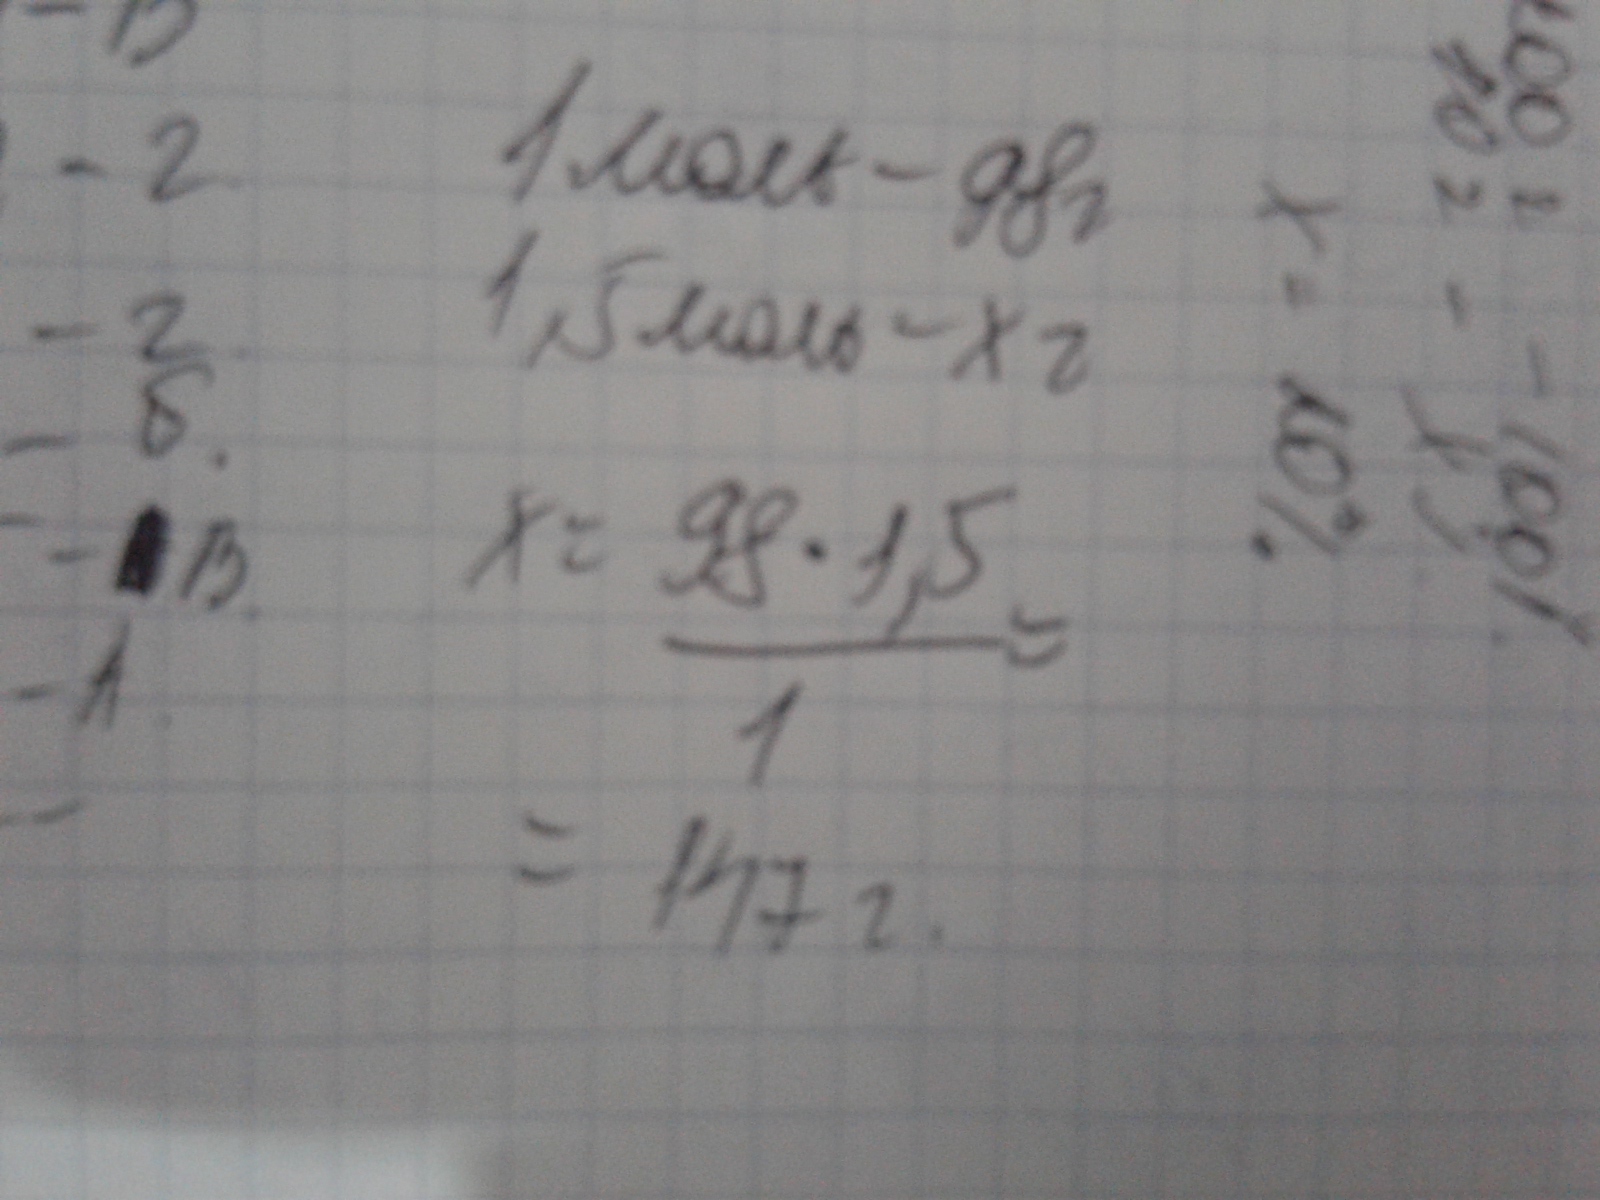 - В
- 2.
- 2.
- б.
- В.
- А.
-
1 моль - 98 г
1,5 моль - x г
x = 98 · 1,5 =
1
= 147 г.
100 г - 100%
10 г - x
x = 10%